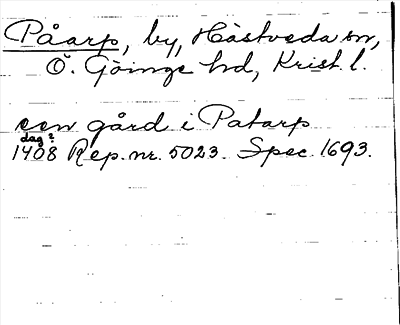 Påarp, by, Hästveda sn,
Ö. Göinge hd, Krist. l.
een gård i Patarp
dag?
1408 Rep. nr. 5023. Spec. 1693.